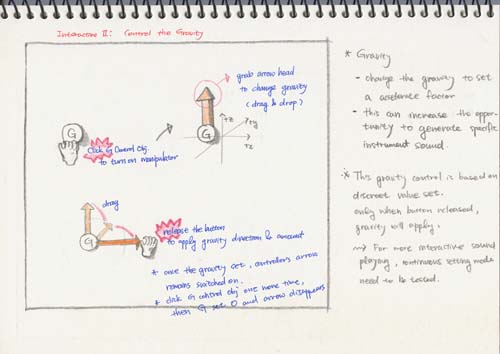 Interaction II: Control the Gravity
grab arrow head
to change gravity
(drag & drop)
G
Click G Control Obj.
to turn on manipulator
G
+z
+y
+x
drag
G
release the button
to apply gravity direction & amount
* once the gravity set, controller's arrow
remains switched on.
* click G control obj one more time,
then G set 0 and arrow disappears
* Gravity
- change the gravity to set
a accelerate factor
- this can increase the oppor-
tunity to generate specific
instrument sound.
* This gravity control is based on
discreet value set.
only when button released,
gravity will apply.
~> For more interactive sound
playing, continuous setting mode
need to be tested.